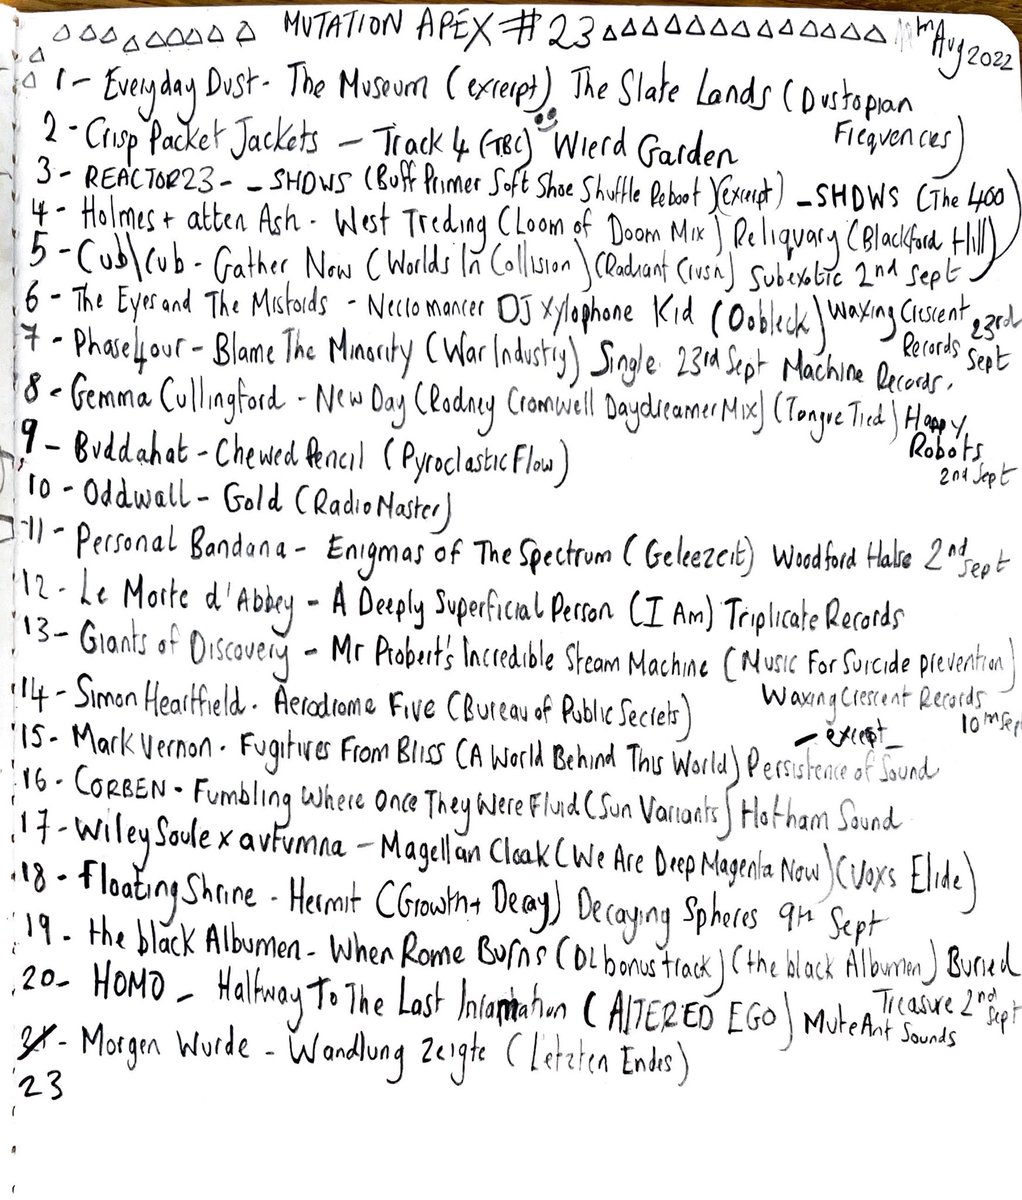 △△△△△△△△△ MUTATION APEX # 23 △△△△△△△△△△△△△△ Aug 2022
1 - Everyday Dust - The Museum (excerpt) The Slate Lands (Dustopian Freqvences)
2 - Crisp Packet Jackets - Track 4 (TBC) Wierd Garden
3 - REACTOR23 - _SHOWS (Buff Primer Soft Shoe Shuffle Reboot) (excerpt) _SHOWS (The 400)
4 - Holmes + atten Ash - West Treding (Loom of Doom Mix) Reliquary (Blackford Hill)
5 - Cub\cub - Gather Now (Worlds In Collision) (Radiant Crush) Subexotic 2nd Sept
6 - The Eyes and The Mistoids - Necromancer DJ Xylophone Kid (Oobleck) Waxing Crescent Records 23rd Sept
7 - Phase4our - Blame The Minority (War Industry) Single 23rd Sept Machine Records.
8 - Gemma Cullingford - New Day (Rodney Cromwell Daydreamer Mix) (Tongue Tied) Happy Robots 2nd Sept
9 - Buddahat - Chewed Pencil (Pyroclastic Flow)
10 - Oddwall - Gold (Radio Master)
11 - Personal Bandana - Enigmas of The Spectrum (Geleezeit) Woodford Halse 2nd Sept
12 - Le Morte d'Abbey - A Deeply Superficial Person (I Am) Triplicate Records
13 - Giants of Discovery - Mr Probert's Incredible Steam Machine (Music For Suicide prevention) Waxing Crescent Records 10th Sept
14 - Simon Heartfield - Aerodrome Five (Bureau of Public Secrets)
15 - Mark Vernon - Fugitives From Bliss (A World Behind This World) - except - Persistence of Sound
16 - CORBEN - Fumbling Where Once They Were Fluid (Sun Variants) Hotham Sound
17 - Wiley Soule x avtvmna - Magellan Cloak (We Are Deep Magenta Now) (Voxs Elide)
18 - Floating Shrine - Hermit (Growth + Decay) Decaying Spheres 9th Sept
19 - the black Albumen - When Rome Burns (DL bonus track) (the black Albumen) Buried Treasure 2nd Sept
20 - HOMO - Halfway To The Last (AlTERED EGO) MuteAnt Sounds
21 - Morgen Wurde - Wandlung Zeigte (Letzten Endes)
23